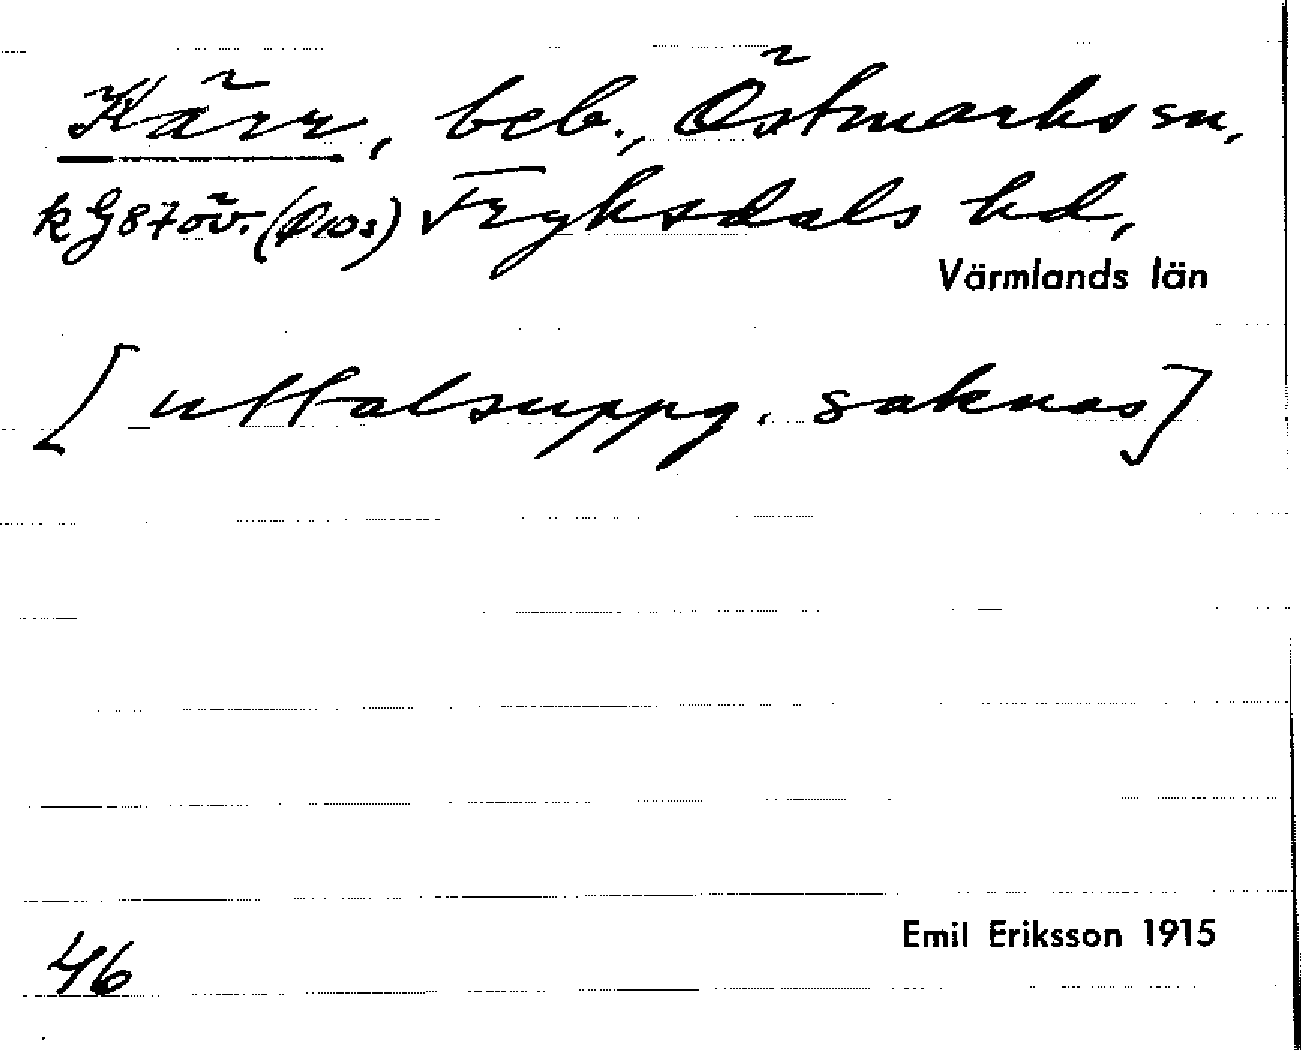 Kärr, beb., Östmarks sn,
k G87öv. Fryksdals hd,
Värmlands län
[uttalsuppg. saknas]
Emil Eriksson 1915
46